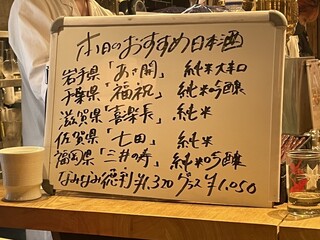 本日のおすすめ日本酒
岩手県「あさ開」 純米大辛口
千葉県「福祝」 純米吟醸
滋賀県「喜楽長」 純米
佐賀県「七田」 純米
福岡県「三井の寿」 純米吟醸
なみなみ徳利¥1,320 グラス¥1,050